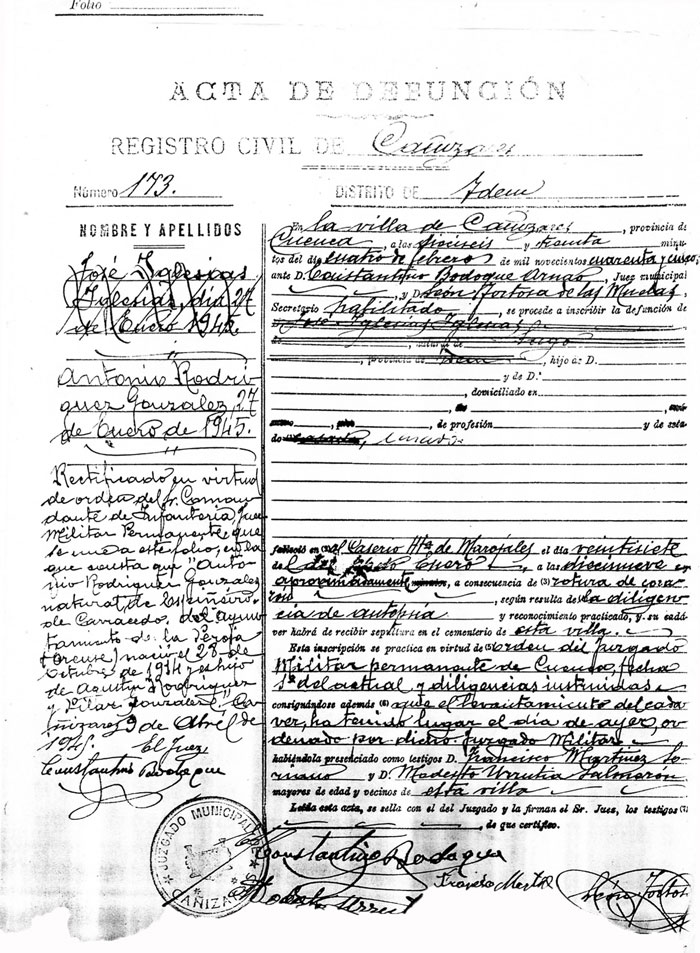 Folio
ACTA DE DEFUNCIÓN
REGISTRO CIVIL DE Cañizares
Número 173.
DISTRITO DE Idem
NOMBRE Y APELLIDOS
José Iglesias
Iglesias, día 27
de Enero 1945.
Antonio Rodrí
guez González, 27
de Enero de 1945.
Rectificado en virtud
de orden del Sr. Coman
dante de Infantería, Juez
Militar Permanente, que
se une a este folio, en la
que consta que "Anto
nio Rodríguez González
natural de
de Carracedo, del ayun
tamiento de la Peroja
(Orense) nació el 28 de
Octubre de 1914 es hijo
de Agustín Rodríguez
y Pilar González". Ca
ñizares 9 de Abril de
1945.
El Juez
Constantino Bodoque
En la villa de Cañizares, provincia de
Cuenca, a las dieciseis y treinta minu-
tos del día cuatro de febrero de mil novecientos cuarenta y cinco,
ante D. Constantino Bodoque Arnao, Juez municipal
, y D. León Tortosa de las Muelas
Secretario habilitado, se procede a inscribir la defunción de
D. José Iglesias Iglesias
de, natural de Lugo
, provincia de Idem, hijo de D.
y de D.ª
, domiciliado en
, de
, de profesión y de esta-
do
falleció en el Caserío Hta de Marojales el día veintisiete
de Enero, a las diecinueve
aproximadamente minutos, a consecuencia de (3) rotura de cora
zón, según resulta de la diligen
cia de autopsia y reconocimiento practicado, y su cadá-
ver habrá de recibir sepultura en el cementerio de esta villa.
Esta inscripción se practica en virtud de orden del Juzgado
Militar permanente de Cuenca, fecha
1º del actual y diligencias instruidas
consignándose además que el levantamiento del cadá
ver, ha tenido lugar el día de ayer, or
denado por dicho Juzgado Militar
habiéndola presenciado como testigos D. Francisco Martínez So
riano y D. Modesto Urrutia Salmerón
mayores de edad y vecinos de esta villa
Leída esta acta, se sella con el del Juzgado y la firman el Sr. Juez, los testigos (7)
, de que certifico.
JUZGADO MUNICIPAL
CAÑIZARES
Constantino Bodoque
Modesto Urrut
León Tortosa